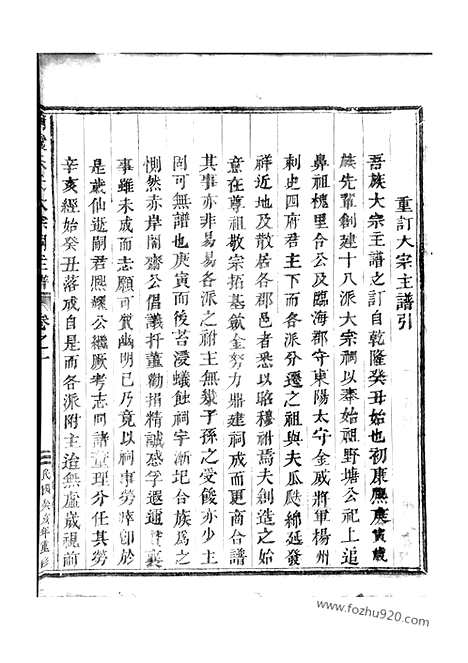 重訂大宗主譜引
吾族大宗主譜之訂自乾隆癸丑始也初康熙庚寅歲
族先輩創建十八派大宗祠以奉始祖野塘公祀上追
鼻祖槐里令公及臨海郡守東陽太守金威將軍楊州
刺史四府君主下而各派分遷之祖與夫瓜瓞綿延發
祥近地及散居各郡邑悉以昭穆祔焉夫創造之始
意在尊祖敬宗拓基歛金努力鼎建祠成而更商台譜
其事亦非易易各派之祔主無幾子孫之受餕亦少主
固可也庚寅而後苔浸蟻蝕祠宇漸圮台族爲之
惻然赤岸閣齋公倡議扦董勸捐精誠感孚遐邇
事雖未成而志願可質幽明已乃竟以祠事勞瘁卽於
是歲仙逝嗣君熙耀公繼厥考志同諸董理分任其勞
辛亥經始癸丑落成自是而各派附主迨無虛歲視前
大宗祠主譜
卷之一
民國癸亥年重修
www.fozhu920.com